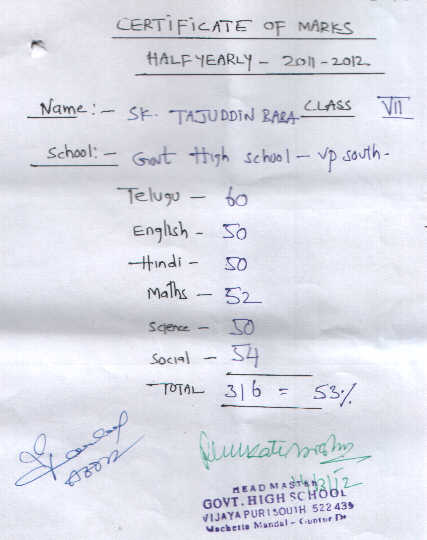 CERTIFICATE OF MARKS
HALFYEARLY - 2011-2012
Name:- SK. TAJUDDIN BABA CLASS VII
School:- Govt High school - vp south-
Telugu - 60
English - 50
Hindi - 50
Maths - 52
Science - 50
Social - 54
TOTAL 316 = 53%
HEAD MASTER
GOVT. HIGH SCHOOL
VIJAYA PURI SOUTH 522 439
Macherla Mandal - Guntur Dt